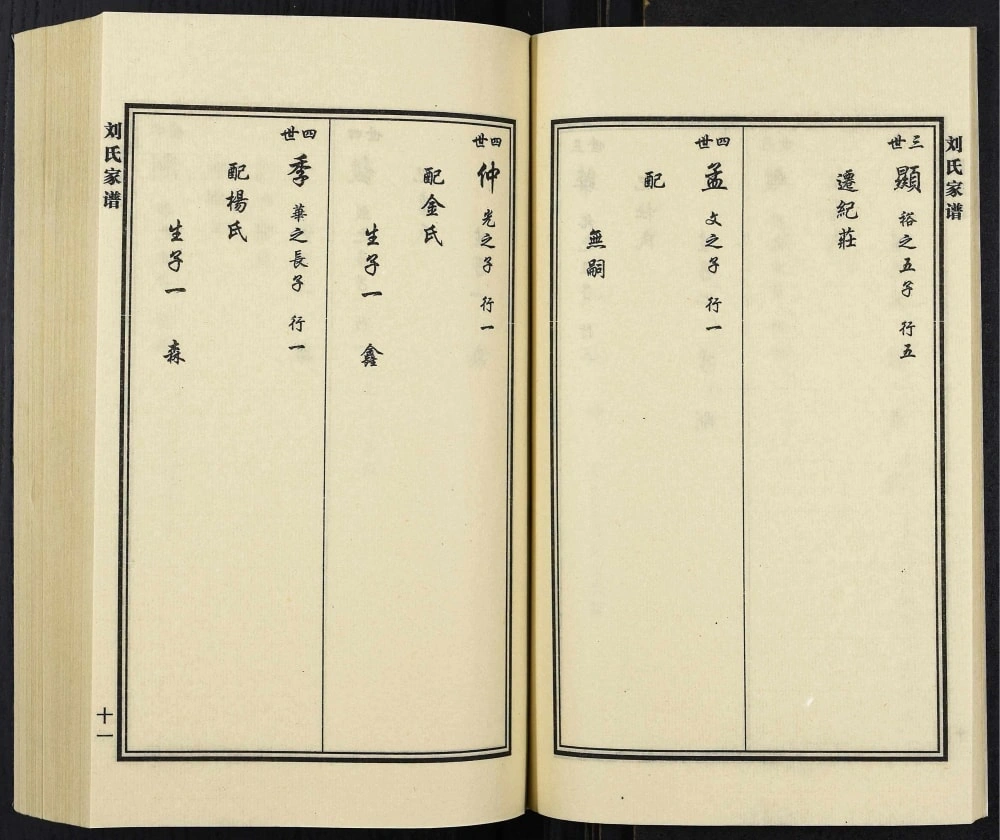 刘氏家谱
三世
顯 裕之五子 行五
遷紀莊
四世
孟 文之子 行一
配
無嗣
四世
仲 光之子 行一
配金氏
生子一 鑫
四世
季 華之長子 行一
配楊氏
生子一 森
刘氏家谱
十一